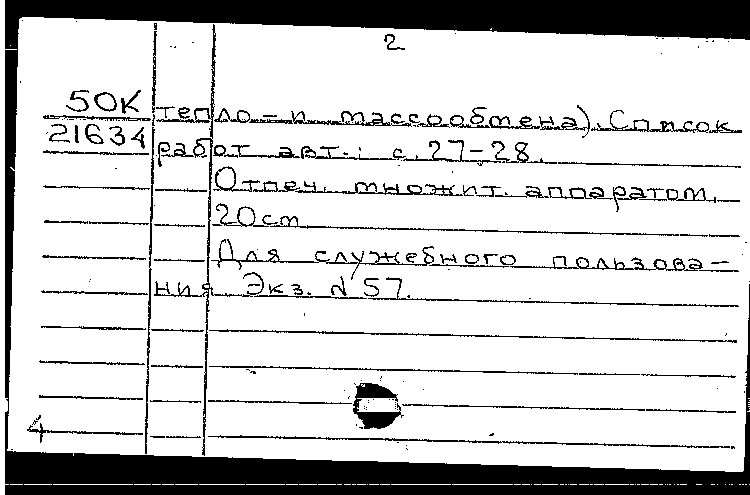 2
50К
21634
тепло-и массообмена). Список
работ авт.: с.27-28.
Отпеч. множит. аппаратом,
20ст
Для служебного пользова-
ния Экз. №57.
4